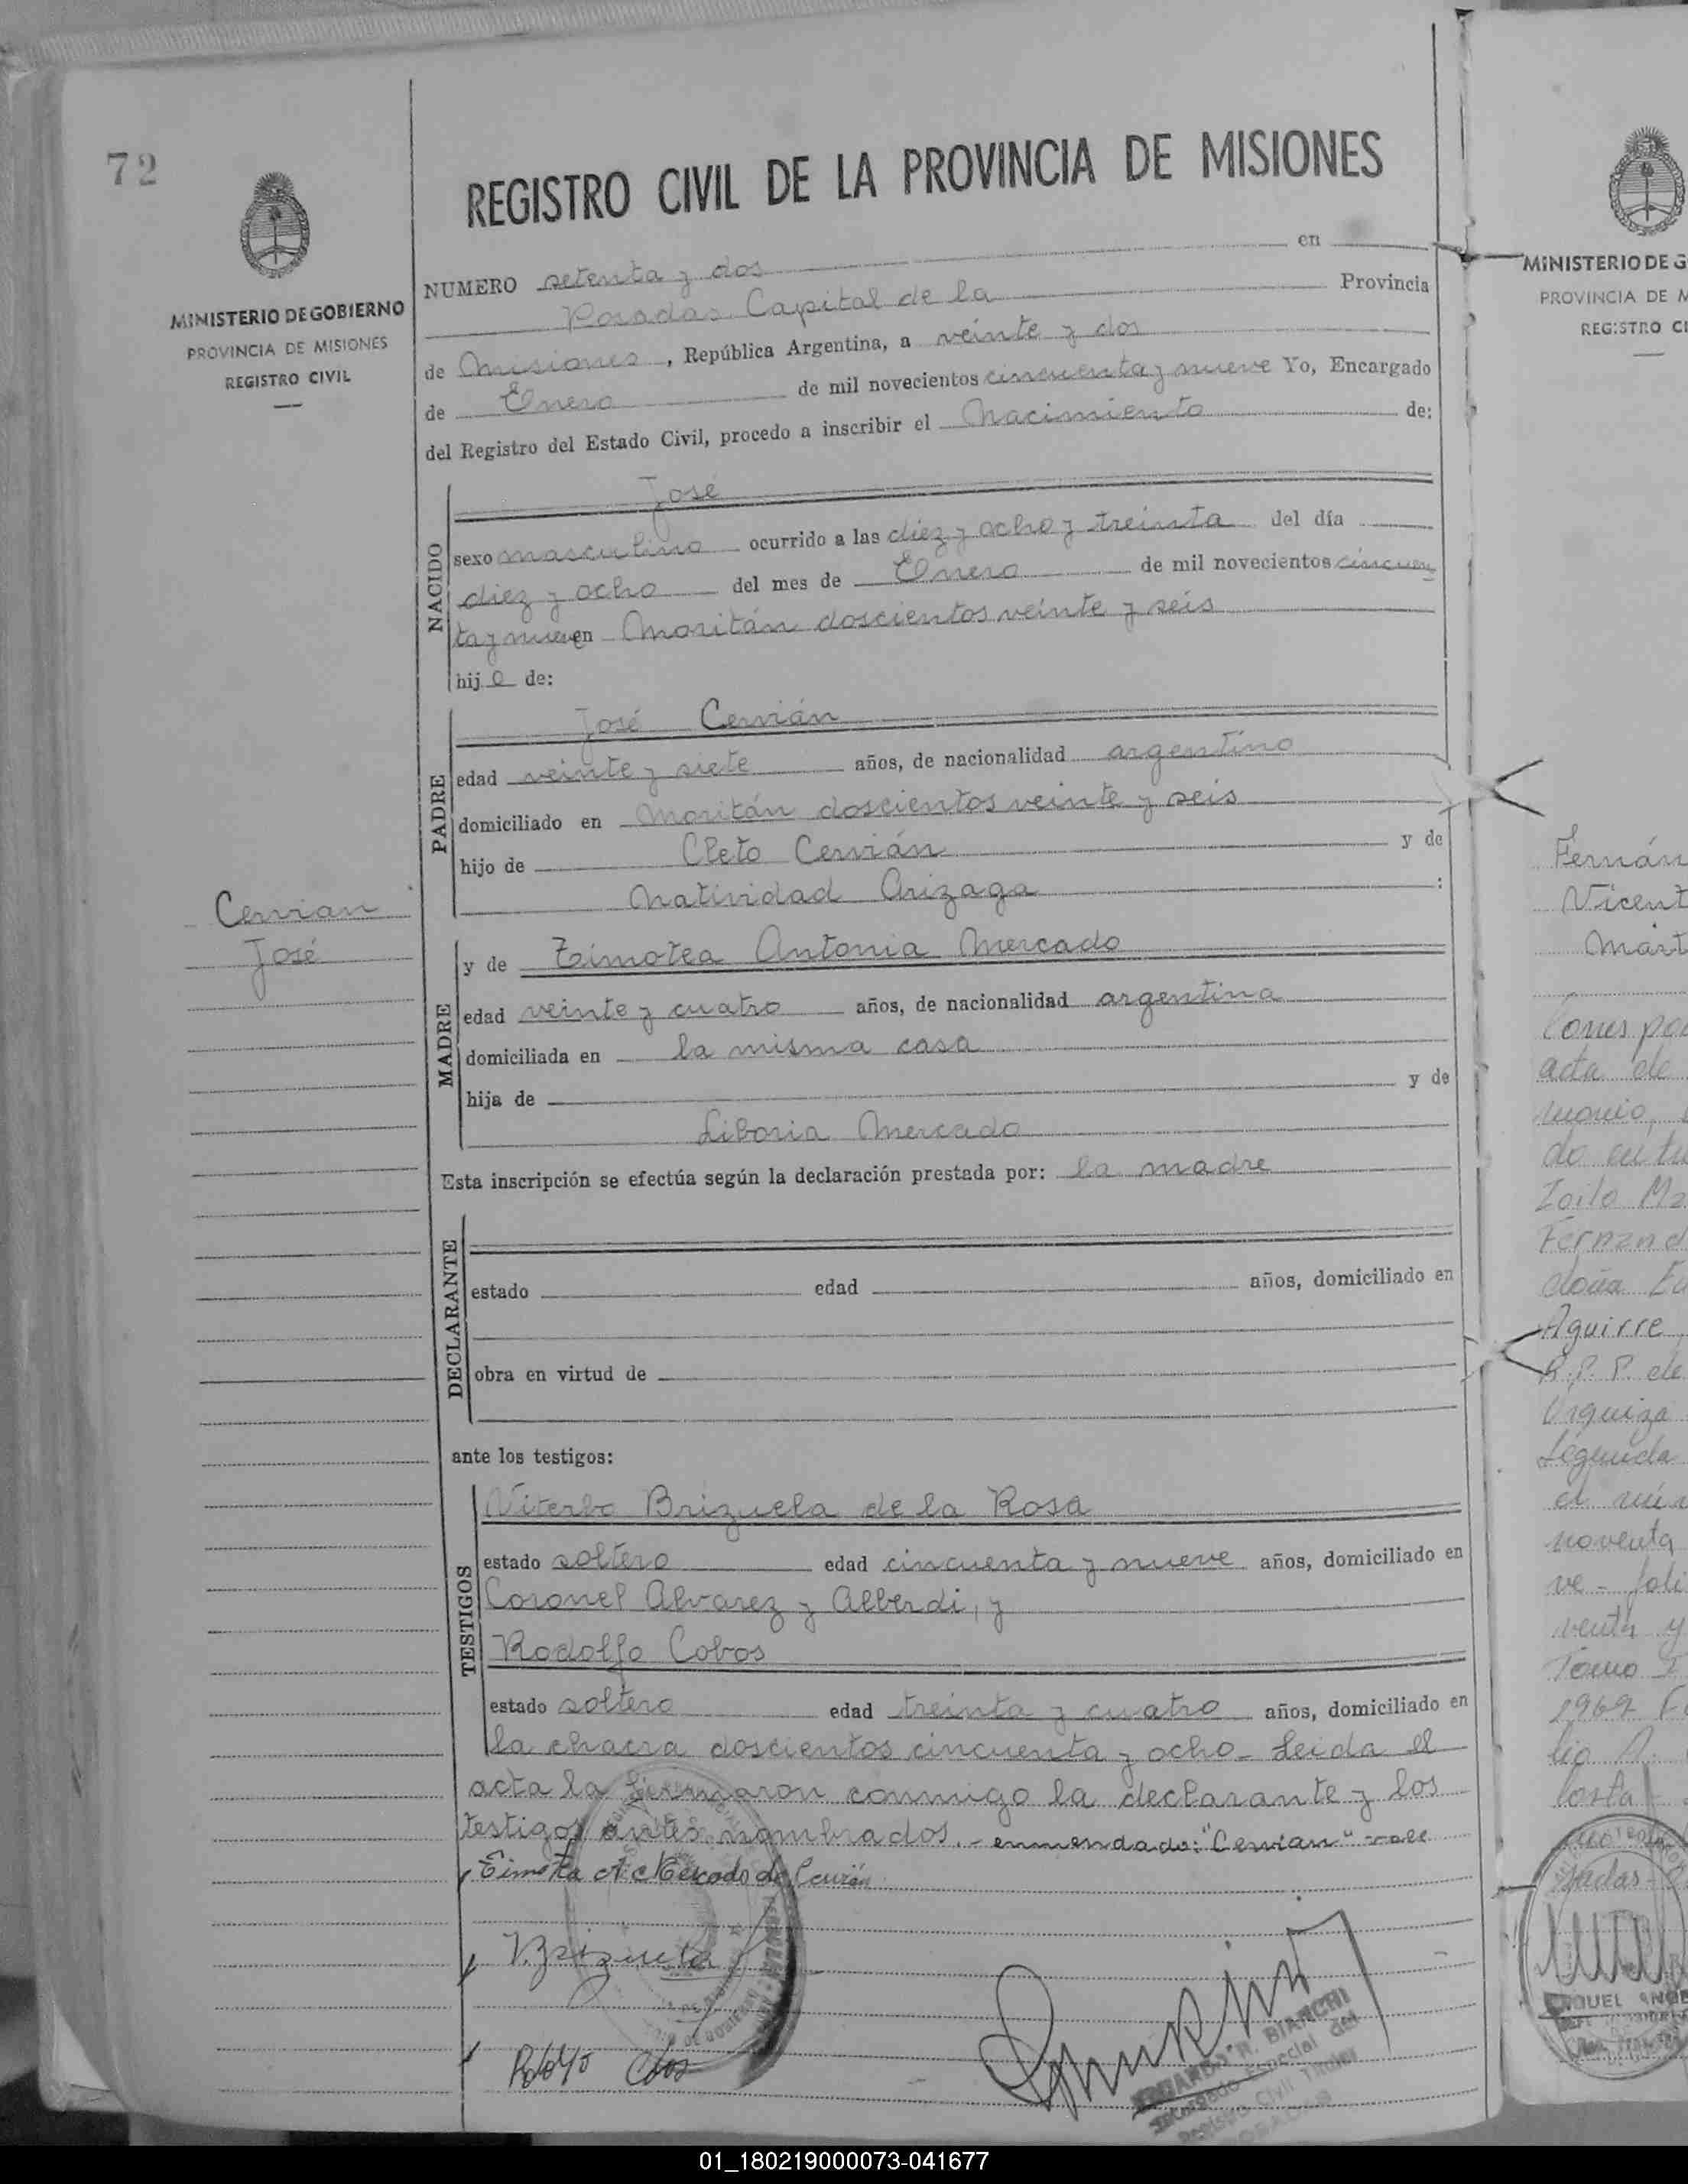 72
MINISTERIO DE GOBIERNO
PROVINCIA DE MISIONES
REGISTRO CIVIL
Cervian
José
REGISTRO CIVIL DE LA PROVINCIA DE MISIONES
NUMERO setenta y dos en
Posadas, Capital de la Provincia
de Misiones, República Argentina, a veinte y dos
de Enero de mil novecientos cincuenta y nueve Yo, Encargado
del Registro del Estado Civil, procedo a inscribir el Nacimiento de:
NACIDO
José
sexo masculino ocurrido a las diez y ocho y treinta del día
diez y ocho del mes de Enero de mil novecientos cincuen
ta y nueve en Moritán doscientos veinte y seis
hijo de:
PADRE
José Cervián
edad veinte y siete años, de nacionalidad argentino
domiciliado en Moritán doscientos veinte y seis
hijo de Cleto Cervián y de
Natividad Arizaga :
MADRE
y de Timotea Antonia Mercado
edad veinte y cuatro años, de nacionalidad argentina
domiciliada en la misma casa
hija de y de
Liboria Mercado
Esta inscripción se efectúa según la declaración prestada por: la madre
DECLARANTE
estado edad años, domiciliado en
obra en virtud de
ante los testigos:
TESTIGOS
Viterbo Brizuela de la Rosa
estado soltero edad cincuenta y nueve años, domiciliado en
Coronel Alvarez y Alberdi, y
Rodolfo Cobos
estado soltero edad treinta y cuatro años, domiciliado en
la chacra doscientos cincuenta y ocho_ Leida el
acta la firmaron conmigo la declarante y los
testigos antes nombrados.- enmendado: "Cervian" vale
Timotea A. Mercado de Cervián
V. Brizuela
Rodolfo Cobos
EDUARDO R. BIANCHI
Encargado Especial del
Registro Civil Titular
MINISTERIO DE G
PROVINCIA DE M
REGISTRO CI
Fernán
Vicent
Mart
acta de
do en tu
Zoilo Ma
Fernand
doña Eu
Aguirre
R.P.P. de
Urquiza
Segunda
noventa
ve - foli
venta y
Tomo I
1969
01_180219000073-041677